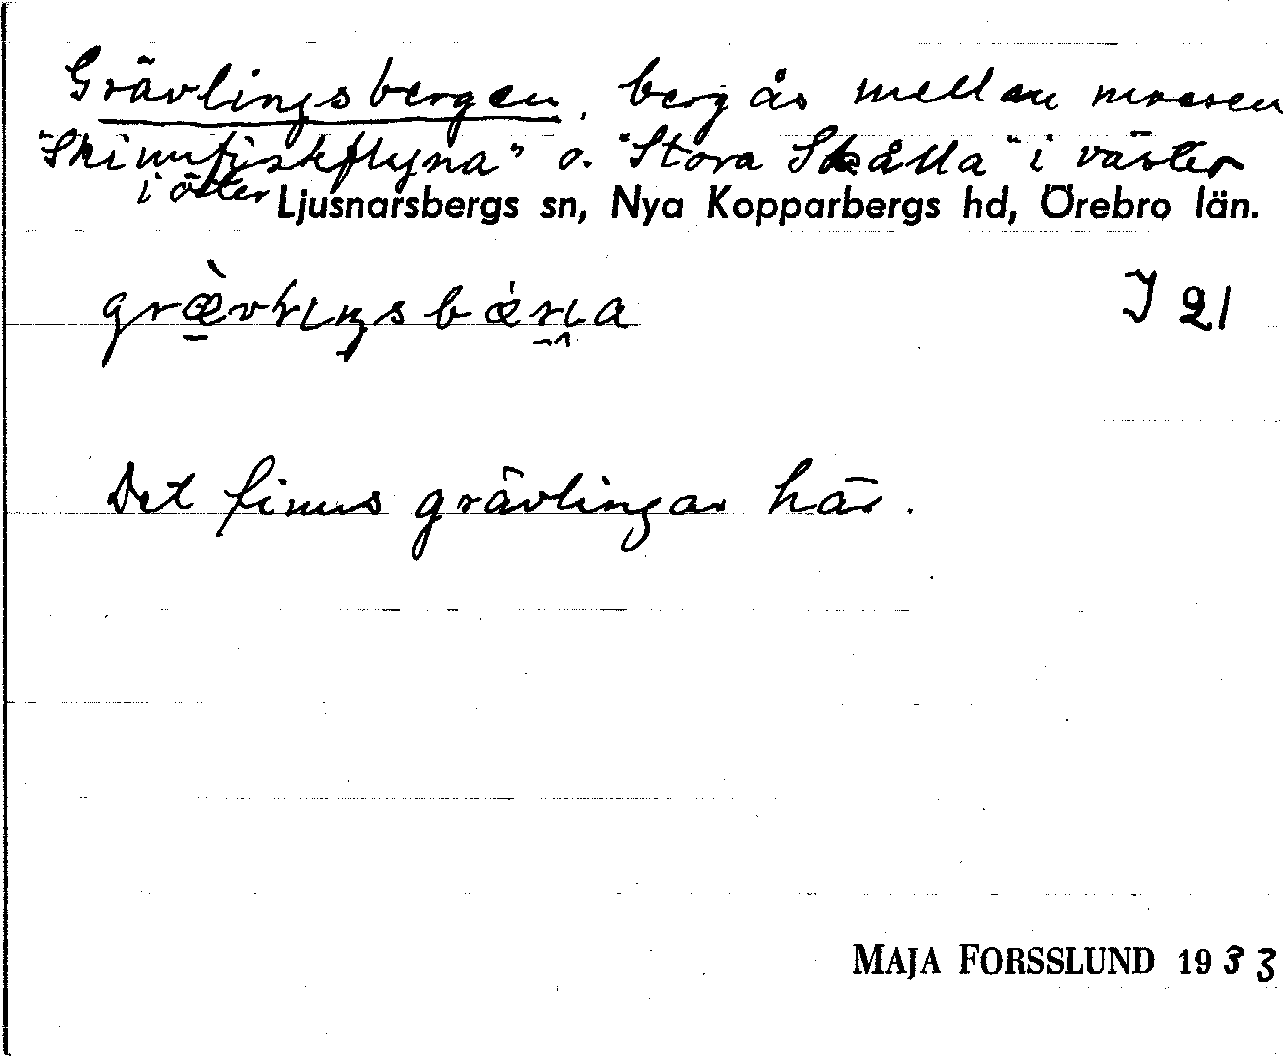 Grävlingsbergen, bergås mellan mossen
"Skinnfiskflyna" o. "Stora Skålla" i väster
i öster Ljusnarsbergs sn, Nya Kopparbergs hd, Örebro län.
I 21
Det finns grävlingar här.
MAJA FORSSLUND 1933